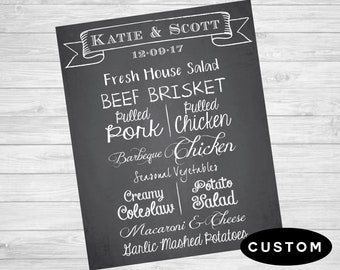 Katie & Scott
12-09-17
Fresh House Salad
BEEF BRISKET
Pulled Pork | Pulled Chicken
Barbeque Chicken
Seasonal Vegetables
Creamy Coleslaw | Potato Salad
Macaroni & Cheese
Garlic Mashed Potatoes
CUSTOM